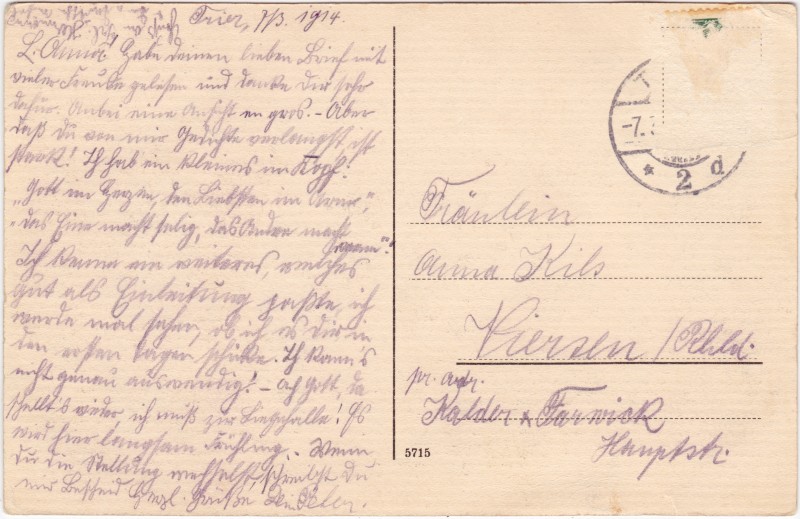 Trier, 7/3. 1914.
L. Anna! Habe deinen lieben Brief mit
vieler Freude gelesen und danke Dir sehr
dafür. Anbei eine Ansicht en gros. - Aber
daß Du von mir Gedichte verlangst, ist
stark! Ich hab ein kleines im Kopf:
"Gott im Herzen, den Liebsten im Arme,"
"das Eine macht selig, das Andre macht
warm"!
Ich kenne ein weiteres, welches
gut als Einleitung paßte, ich
werde mal sehen, ob ich es dir in
den ersten Tagen schicke. Ich kann's
nicht genau auswendig! - Ach Gott, da
schellt's wieder, ich muß zur Liegehalle! Es
wird hier langsam Frühling. Wenn
Du die Stellung wechselst, schreibst Du
mir Bescheid. Herzl. Grüße Dein Peter.
T
-7.
* 2 d
Fräulein
Anna Kils
Viersen / Rhld.
pr. adr.
Kalder & Farwick
Hauptstr.
5715